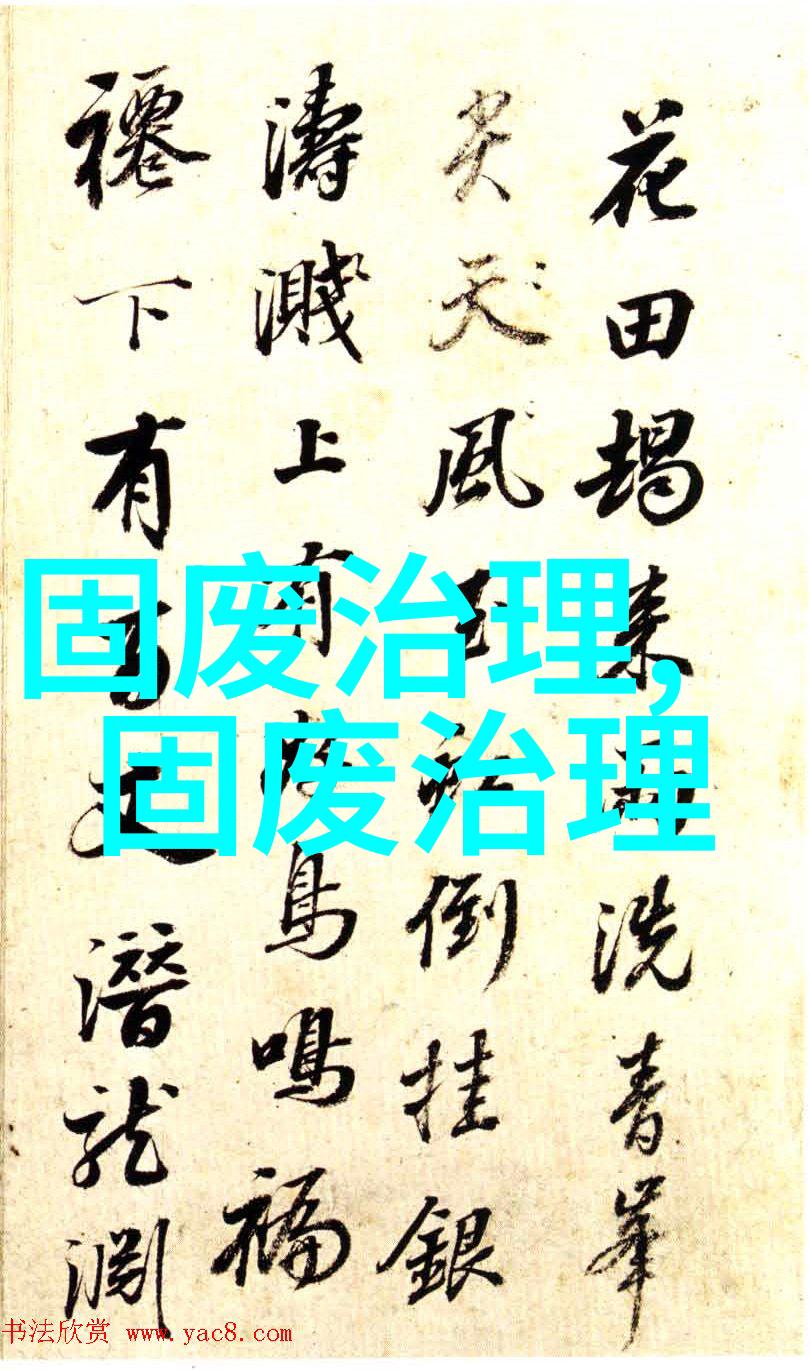 花田朅来洗青峯
尖天風倒挂銀
濤濺上有鳥鳴福
下有潛龍淵
固废治理,
固废治理
书法欣赏 www.yac8.com